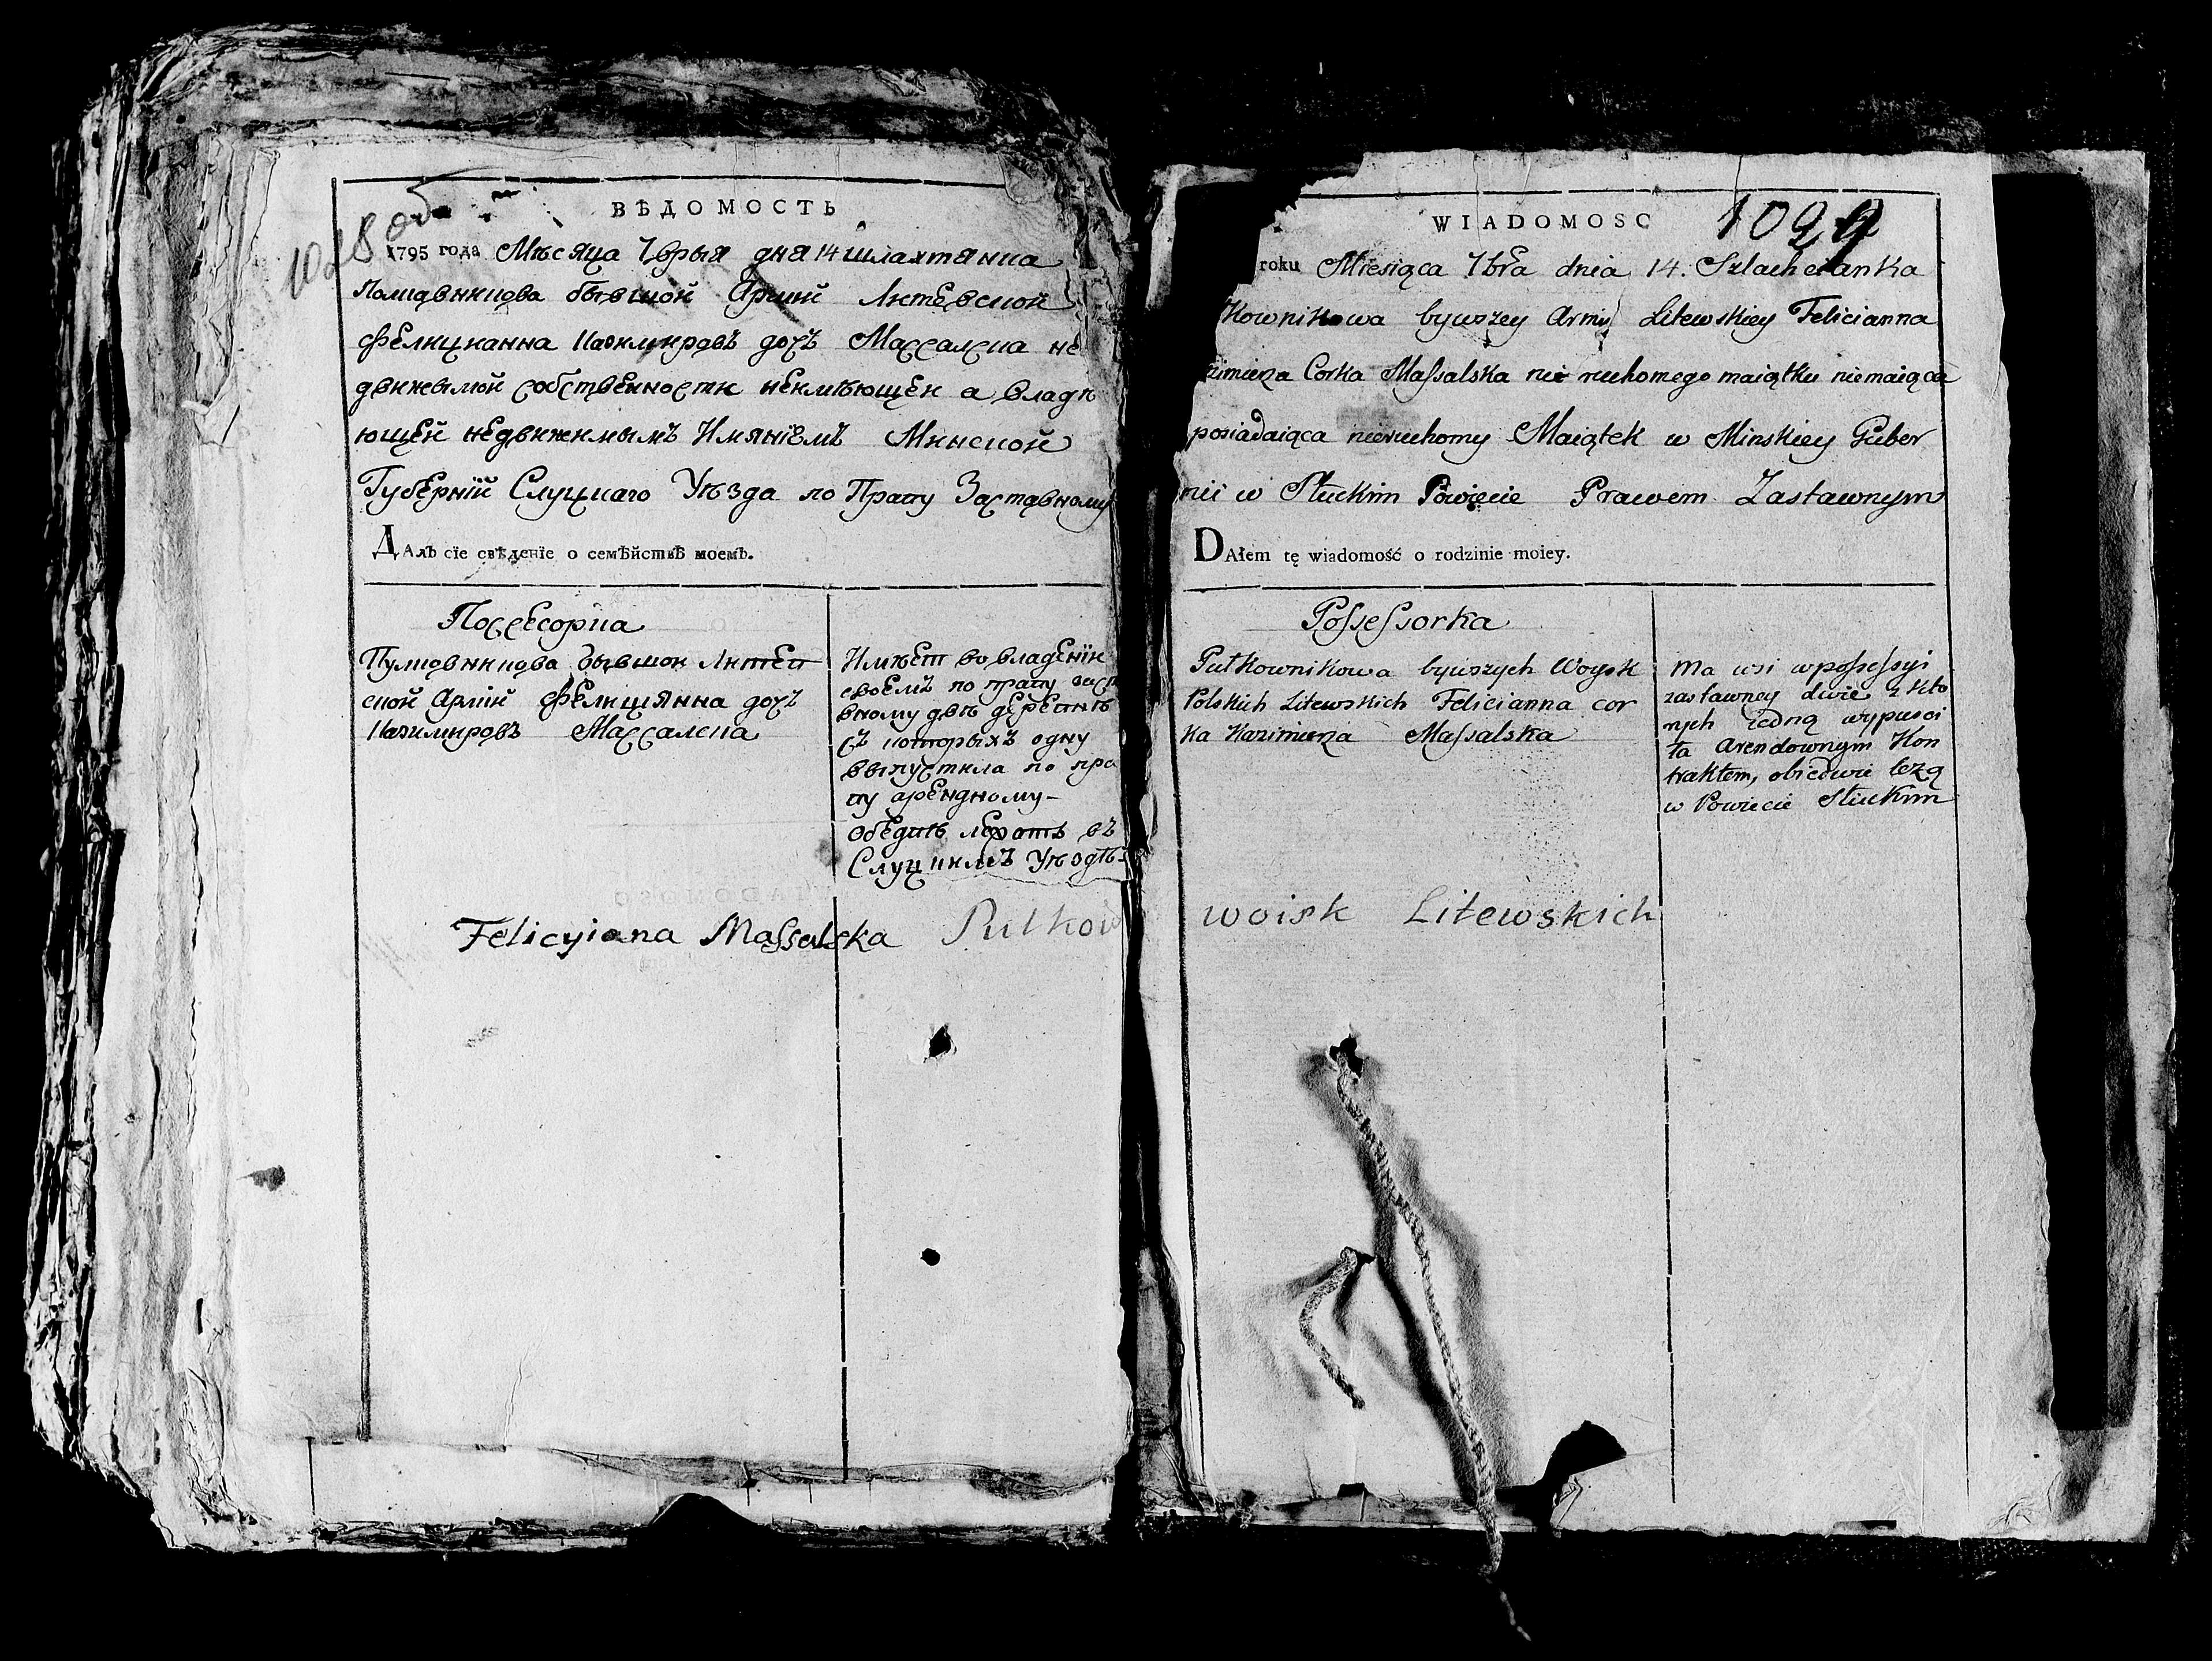 1028 об
ВѢДОМОСТЬ
1795 года Мѣсяца 7брыя дня 14 шляхтянка
Полковникова бывшой Армiи Литевской
Фелицианна Казимировъ дочъ Массалска не
движымой собственности неимѣющей а владѣ
ющей недвижимымъ Имянiемъ Минской
Губернiй Слуцкаго Уѣзда по Праву Заставному
ДАлъ сiе свѣденiе о семѣйствѣ моемъ.
Поссесорка
Пулковникова бывшой Литев
ской Армiй Фелициянна дочъ
Казимировъ Массалска
Имѣет во владенiи
своемъ по праву заста
вному двѣ деревнѣ
съ которыхъ одну
выпустила по пра
ву арендному-
Обедвѣ лежатъ въ
Слуцкимъ Уѣздѣ-
Felicyiana Maſsalska Pulkow
WIADOMOSC 1029
roku Miesiąca 7bra dnia 14. Szlachcianka
Kownikowa bywszey Armii Litewskiey Felicianna
zimierza Corka Maſsalska nie ruchomego maiątku niemaiąca
posiadaiąca nieruchomy Maiątek w Minskiey Guber
nii w Słuckim Powiecie Prawem Zastawnym
DAłem tę wiadomość o rodzinie moiey.
Poſseſsorka
Pułkownikowa bywszych Woysk
Polskich Litewskich Felicianna cor
ka Kazimierza Maſsalska
Ma wsi wpoſseſsyi
zastawney dwie z kto
rych iedną wypusci
ła Arendownym Kon
traktem, obiedwie leżą
w Powiecie Słuckim
woisk Litewskich